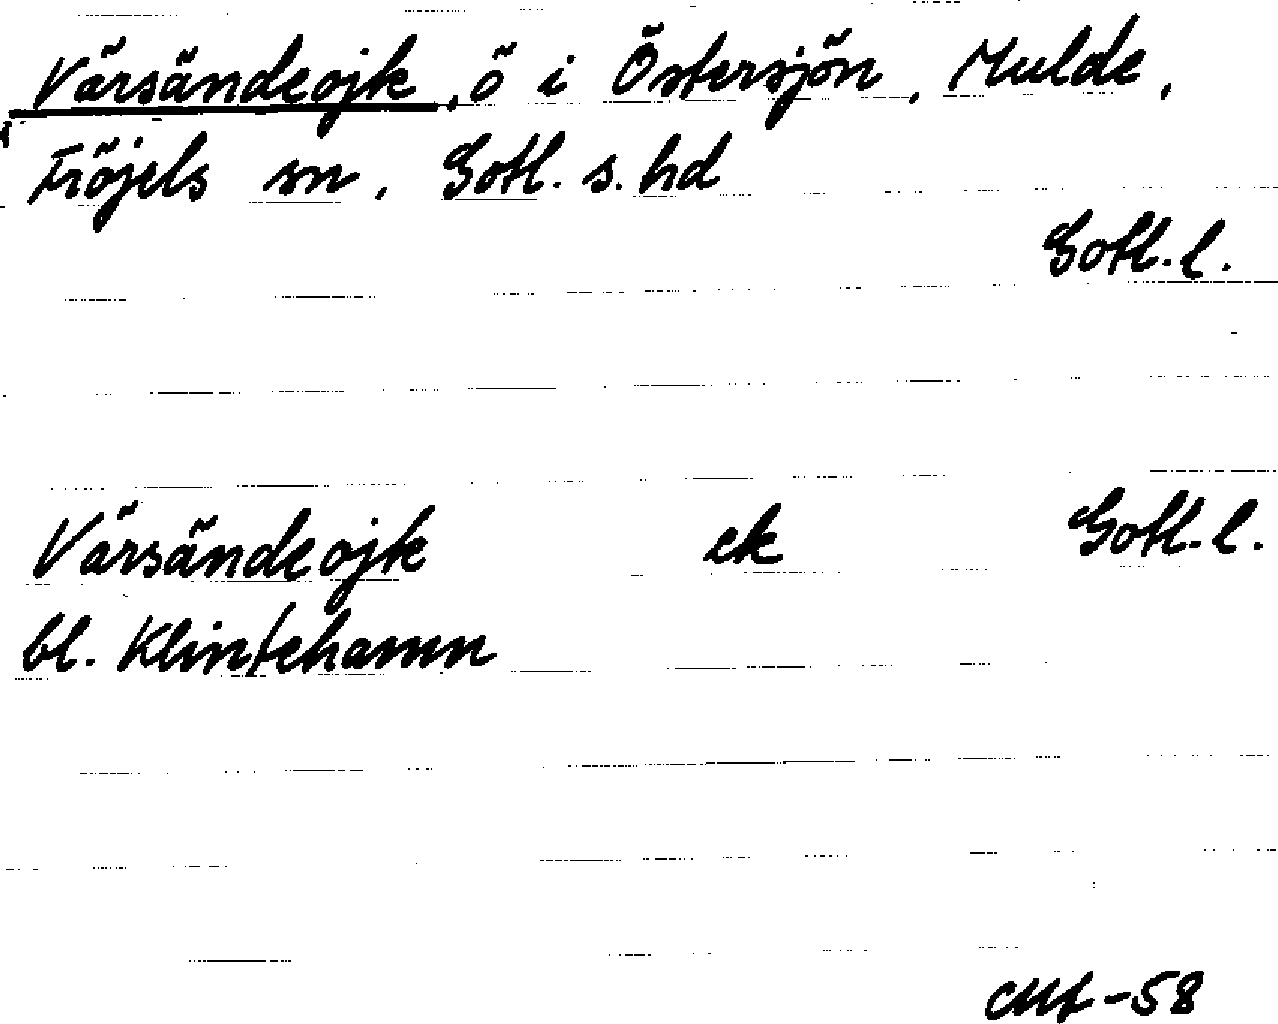 Värsändeojk, ö i Östersjön, Mulde,
Fröjels sn, Gotl. s. hd
Gotl. l.
Värsändeojk ek Gotl. l.
bl. Klintehamn
-58